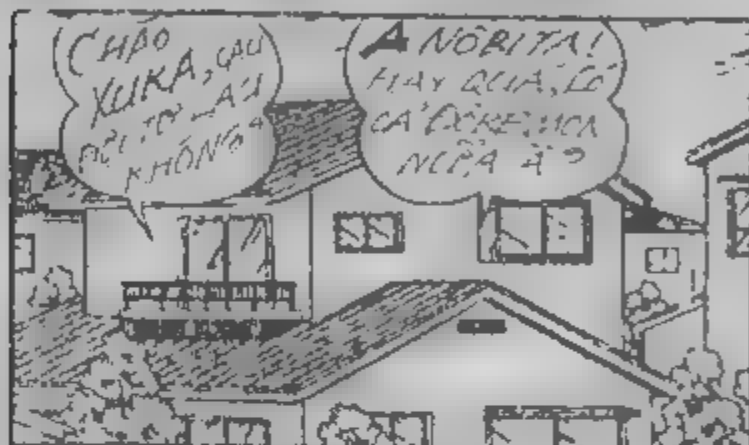 CHÀO
XUKA, CẬU
ĐỢI TỚ LÂU
KHÔNG?
A NÔBITA!
HAY QUÁ, CÓ
CẢ ĐÔRÊMON
NỮA À?